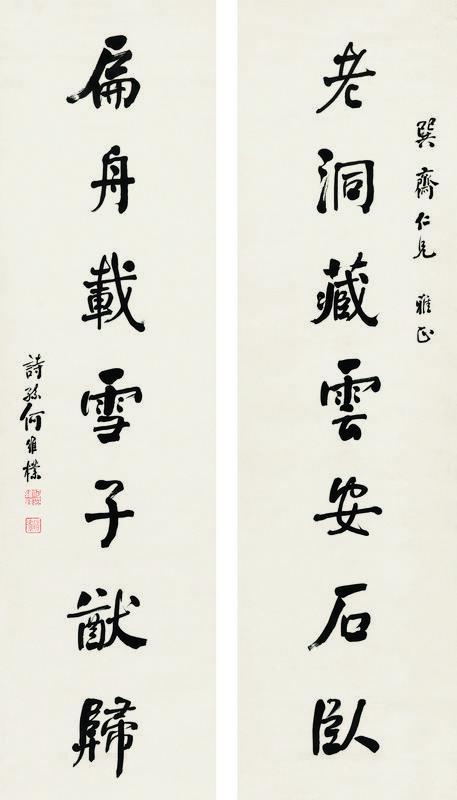 巽齋仁兄 雅正
老洞藏雲安石臥
扁舟載雪子猷歸
詩孫何維樸